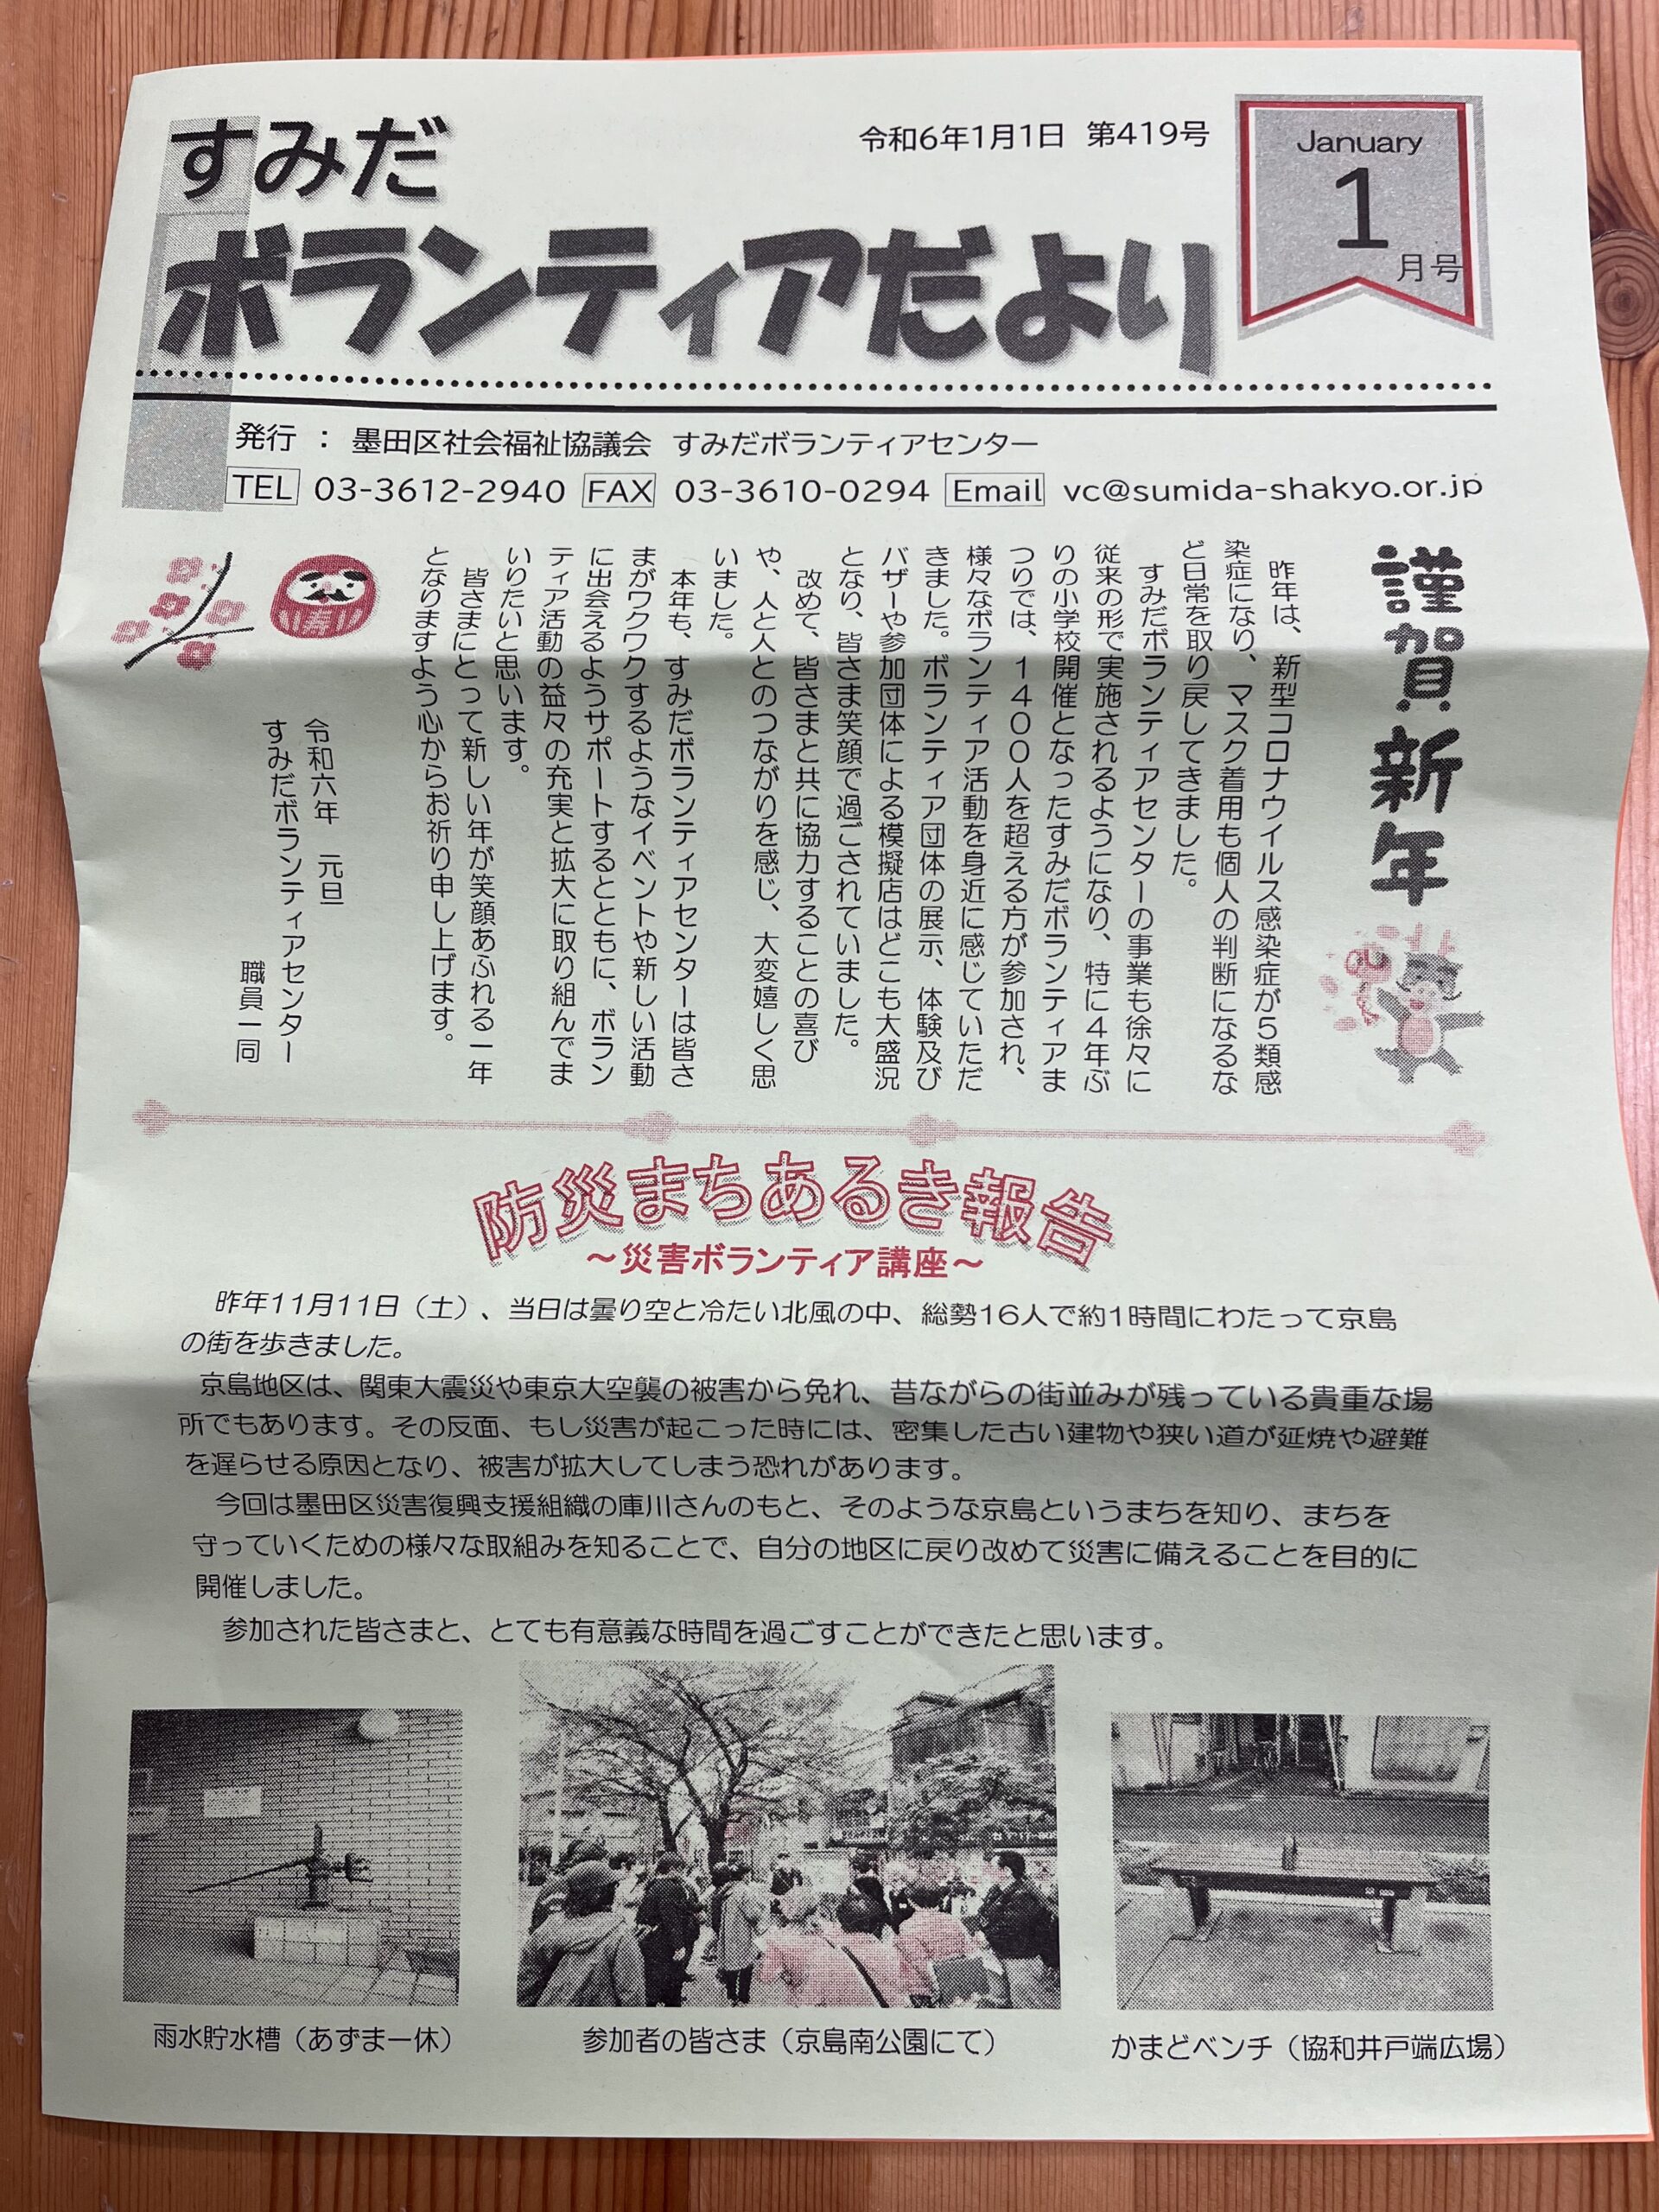 すみだ
ボランティアだより
令和6年1月1日 第419号
January
1
月号
発行 : 墨田区社会福祉協議会 すみだボランティアセンター
TEL 03-3612-2940 FAX 03-3610-0294 Email vc@sumida-shakyo.or.jp
謹賀新年
昨年は、新型コロナウイルス感染症が5類感
染症になり、マスク着用も個人の判断になるな
ど日常を取り戻してきました。
すみだボランティアセンターの事業も徐々に
従来の形で実施されるようになり、特に4年ぶ
りの小学校開催となったすみだボランティアま
つりでは、1400人を超える方が参加され、
様々なボランティア活動を身近に感じていただ
きました。ボランティア団体の展示、体験及び
バザーや参加団体による模擬店はどこも大盛況
となり、皆さま笑顔で過ごされていました。
改めて、皆さまと共に協力することの喜び
や、人と人とのつながりを感じ、大変嬉しく思
いました。
本年も、すみだボランティアセンターは皆さ
まがワクワクするようなイベントや新しい活動
に出会えるようサポートするとともに、ボラン
ティア活動の益々の充実と拡大に取り組んでま
いりたいと思います。
皆さまにとって新しい年が笑顔あふれる一年
となりますよう心からお祈り申し上げます。
令和六年 元旦
すみだボランティアセンター
職員一同
寿
防災まちあるき報告
～災害ボランティア講座～
昨年11月11日（土）、当日は曇り空と冷たい北風の中、総勢16人で約1時間にわたって京島
の街を歩きました。
京島地区は、関東大震災や東京大空襲の被害から免れ、昔ながらの街並みが残っている貴重な場
所でもあります。その反面、もし災害が起こった時には、密集した古い建物や狭い道が延焼や避難
を遅らせる原因となり、被害が拡大してしまう恐れがあります。
今回は墨田区災害復興支援組織の庫川さんのもと、そのような京島というまちを知り、まちを
守っていくための様々な取組みを知ることで、自分の地区に戻り改めて災害に備えることを目的に
開催しました。
参加された皆さまと、とても有意義な時間を過ごすことができたと思います。
雨水貯水槽（あずま一休）
参加者の皆さま（京島南公園にて）
かまどベンチ（協和井戸端広場）